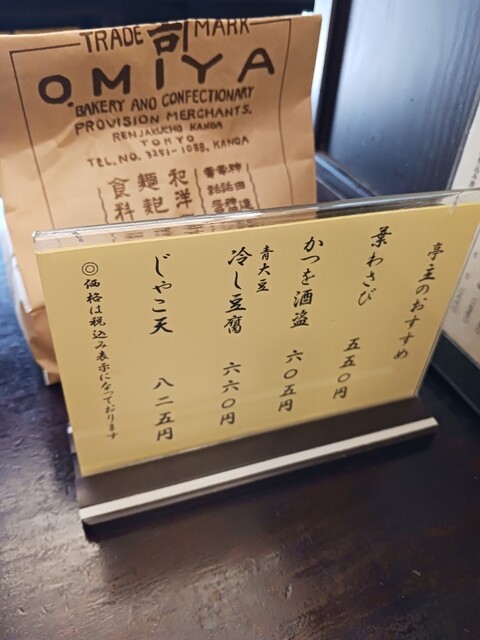 TRADE 司 MARK
OMIYA
BAKERY AND CONFECTIONARY
PROVISION MERCHANTS.
RENJAKUCHO KANDA
TOKYO
TEL.NO. 3251-1088, KANDA
和洋
麺麭
食料
亭主のおすすめ
葉わさび 五五〇円
かつを酒盗 六〇五円
青大豆
冷し豆腐 六六〇円
じゃこ天 八二五円
◎価格は税込み表示になっております